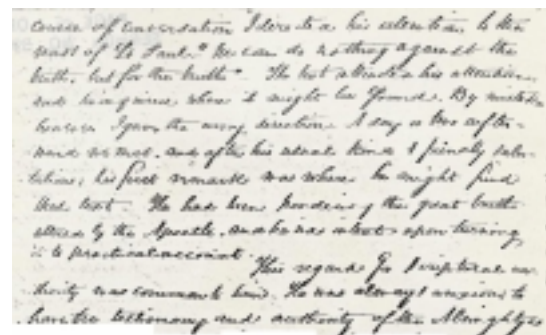 course of conversation I directed his attention to the
words of St Paul "We can do nothing against the
truth, but for the truth". The text attracted his attention
and he inquired where it might be found. By mistake
however I gave the wrong direction. A day or two after-
ward we met, and after his usual kind & friendly salu-
tations, his first remark was where he might find
that text. He had been pondering the great truth
uttered by the Apostle, and was intent upon turning
it to practical account.
His regard for Scriptural au
thority was common to him. He was always anxious to
have the testimony and authority of the Almighty